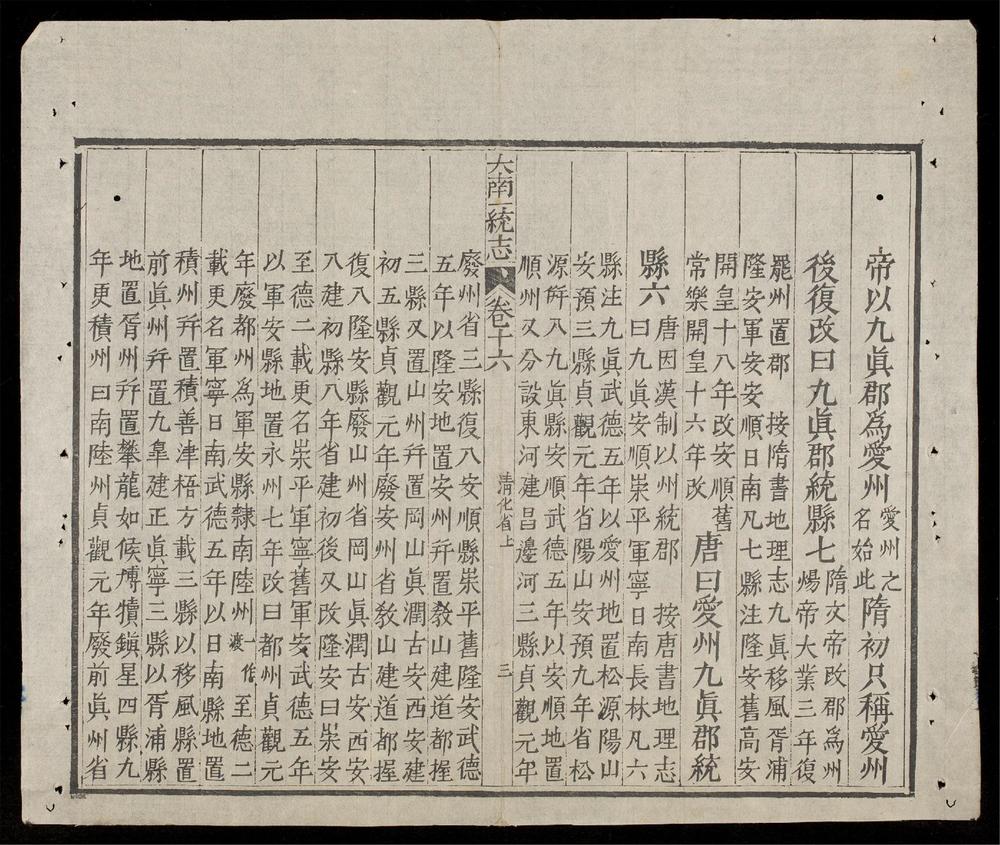 帝以九眞郡為愛州愛州之名始此隋初只稱愛州
後復改曰九眞郡統縣七隋文帝改郡為州煬帝大業三年復
罷州置郡　按隋書地理志九眞移風胥浦
隆安軍安安順日南凡七縣注隆安舊高安
開皇十八年改安順舊
常樂開皇十六年改
唐曰愛州九眞郡統
縣六
唐因漢制以州統郡　按唐書地理志
曰九眞安順崇平軍寧日南長林凡六
縣注九眞武德五年以愛州地置松源陽山
安預三縣貞觀元年省陽山安預九年省松
源𠉀八九眞縣安順武德五年以安順地置
順州又分設東河建昌邊河三縣貞觀元年
大南一統志
卷十六
清化省上
三
廢州省三縣復入安順縣崇平舊隆安武德
五年以隆安地置安州幷置敎山建道都握
三縣又置山州幷置岡山眞潤古安西安建
初五縣貞觀元年廢安州省敎山建道都握
復入隆安縣廢山州省岡山眞潤古安西安
八建初縣八年省建初後又改隆安曰崇安
至德二載更名崇平軍寧舊軍安武德五年
以軍安縣地置永州七年改曰都州貞觀元
年廢都州為軍安縣隸南陸州一作渡至德二
載更名軍寧日南武德五年以日南縣地置
積州幷置積善津梧方載三縣以移風縣置
前眞州幷置九臯建正眞寧三縣以胥浦縣
地置胥州幷置攀龍如侯博犢鎭星四縣九
年更積州曰南陸州貞觀元年廢前眞州省